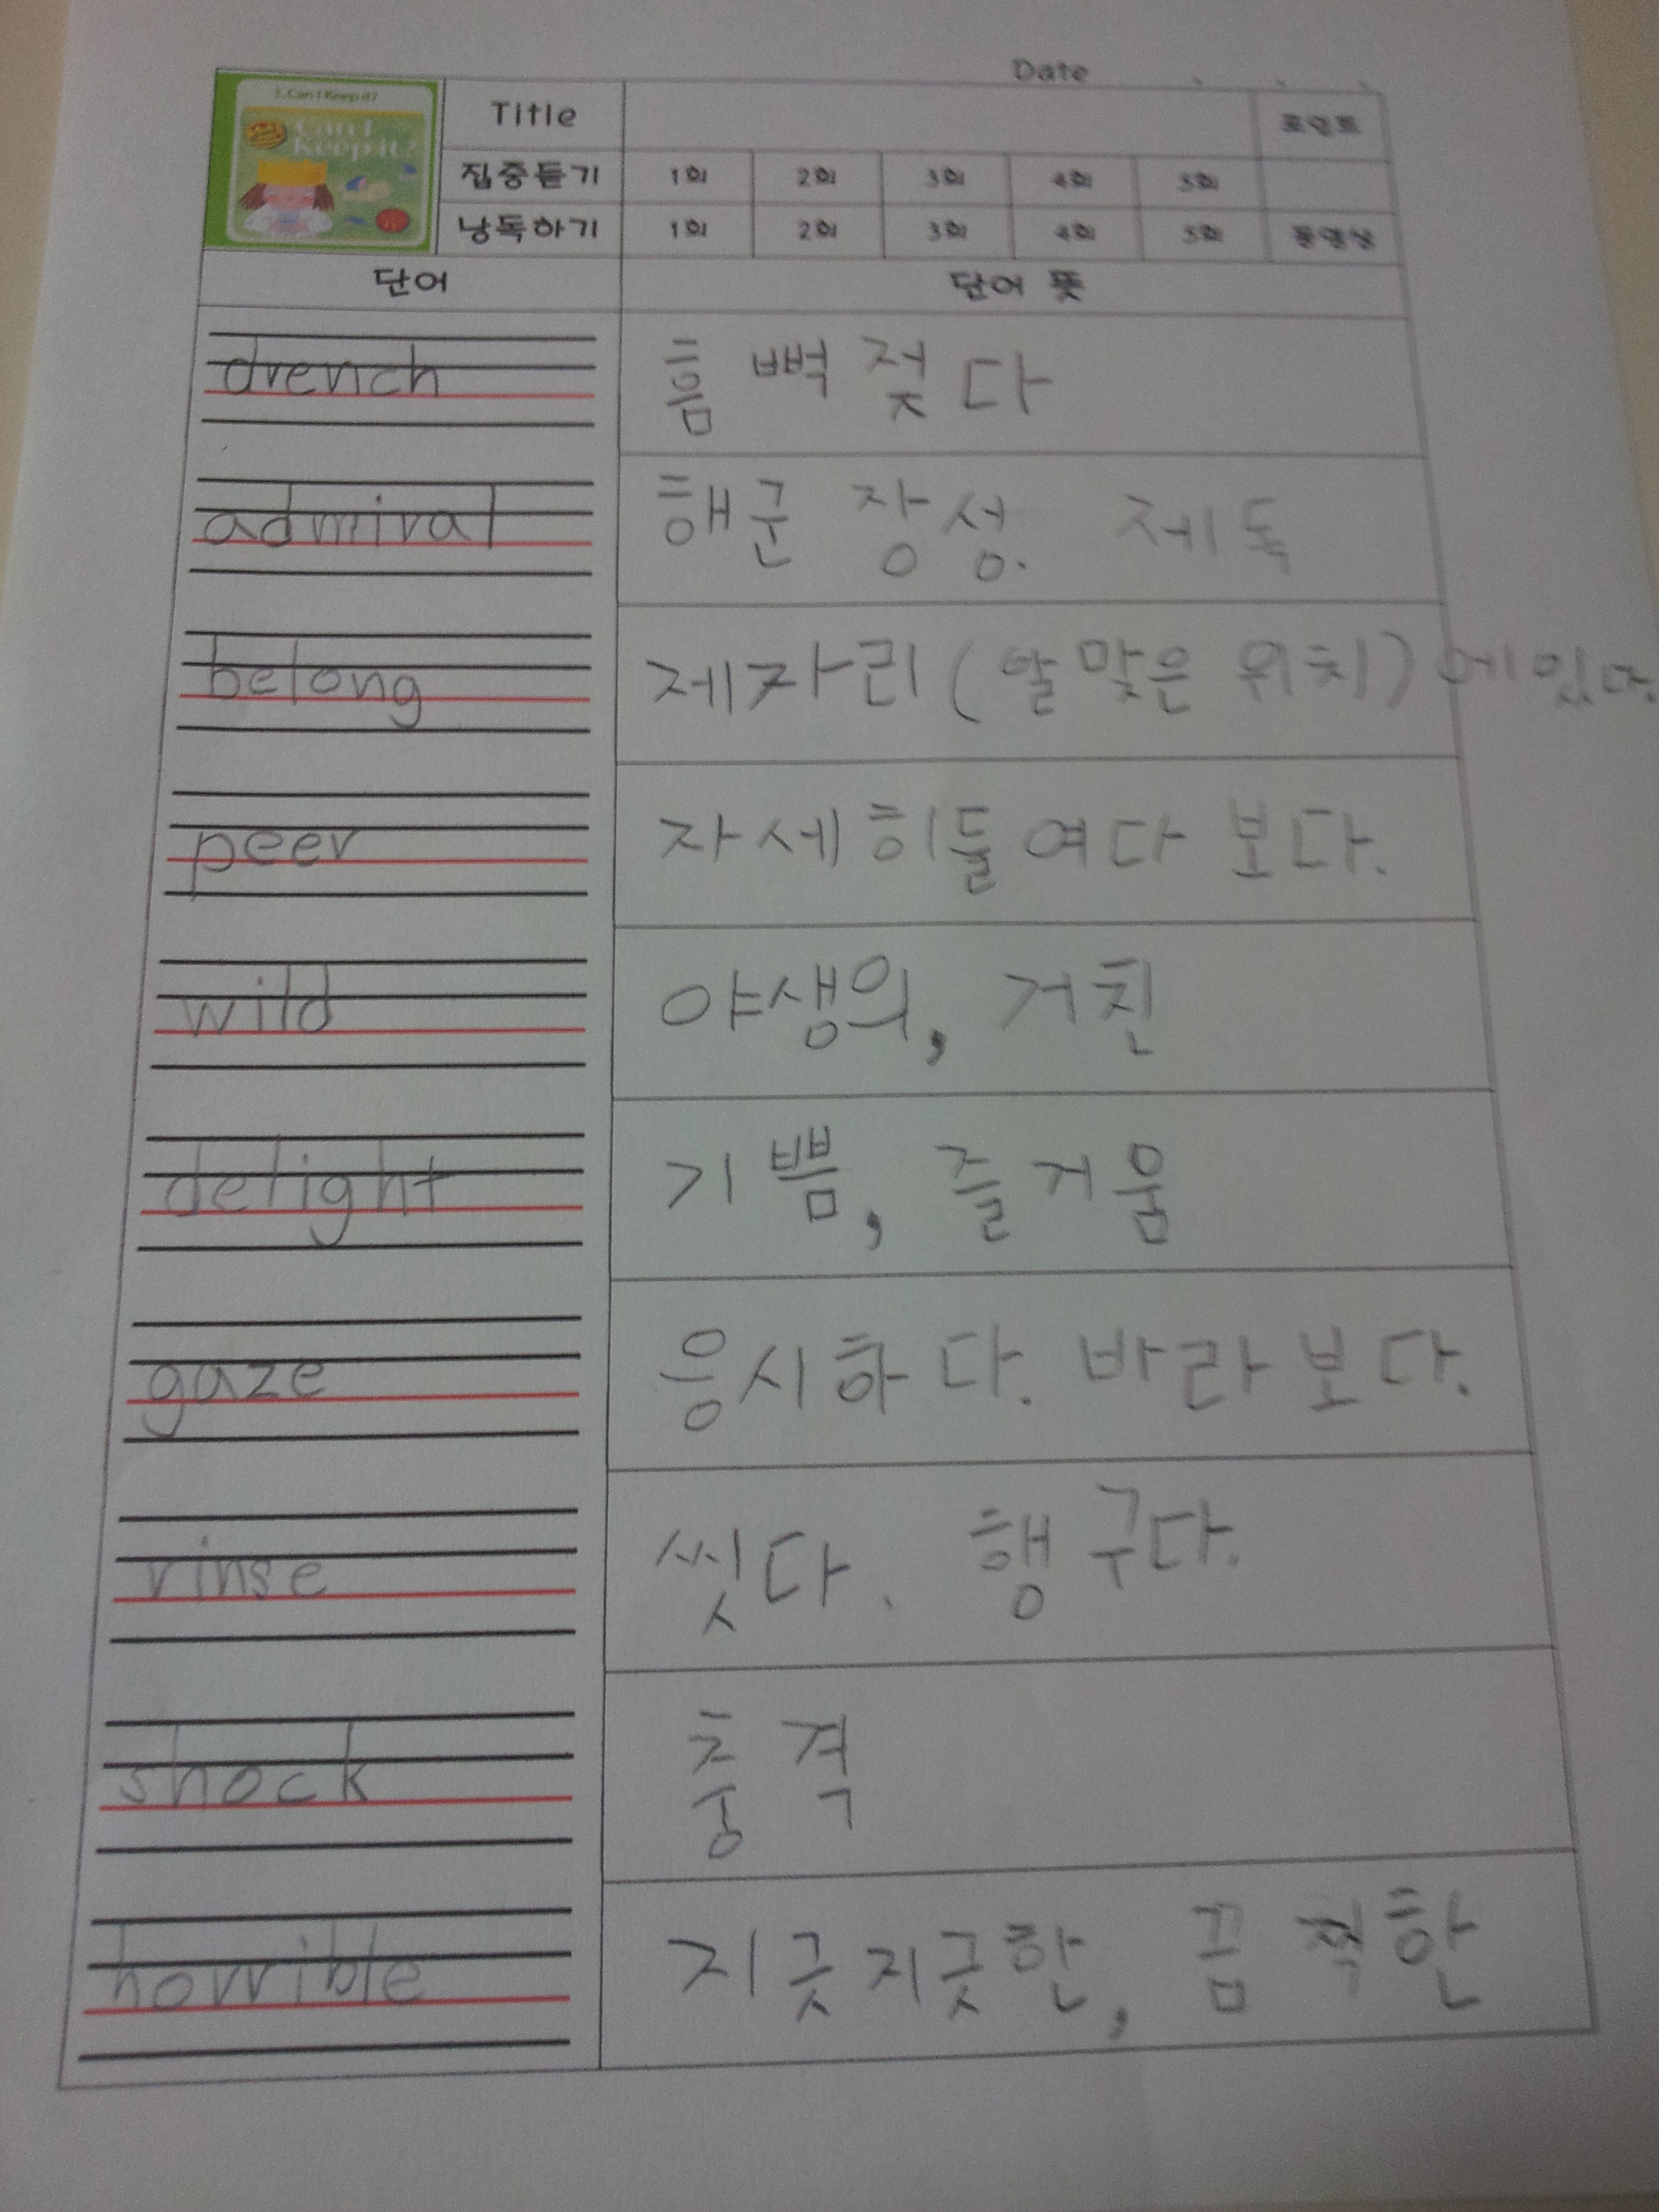 Date . . .
1. Can I Keep it?
Can I
Keep it?
Title 프린트
집중듣기 1회 2회 3회 4회 5회
낭독하기 1회 2회 3회 4회 5회 동영상
단어 단어 뜻
drench 흠뻑 젖다
admiral 해군 장성. 제독
belong 제자리(알맞은 위치)에있다.
peer 자세히들여다 보다.
wild 야생의, 거친
delight 기쁨, 즐거움
gaze 응시하다. 바라보다.
rinse 씻다. 헹구다.
shock 충격
horrible 지긋지긋한, 끔찍한